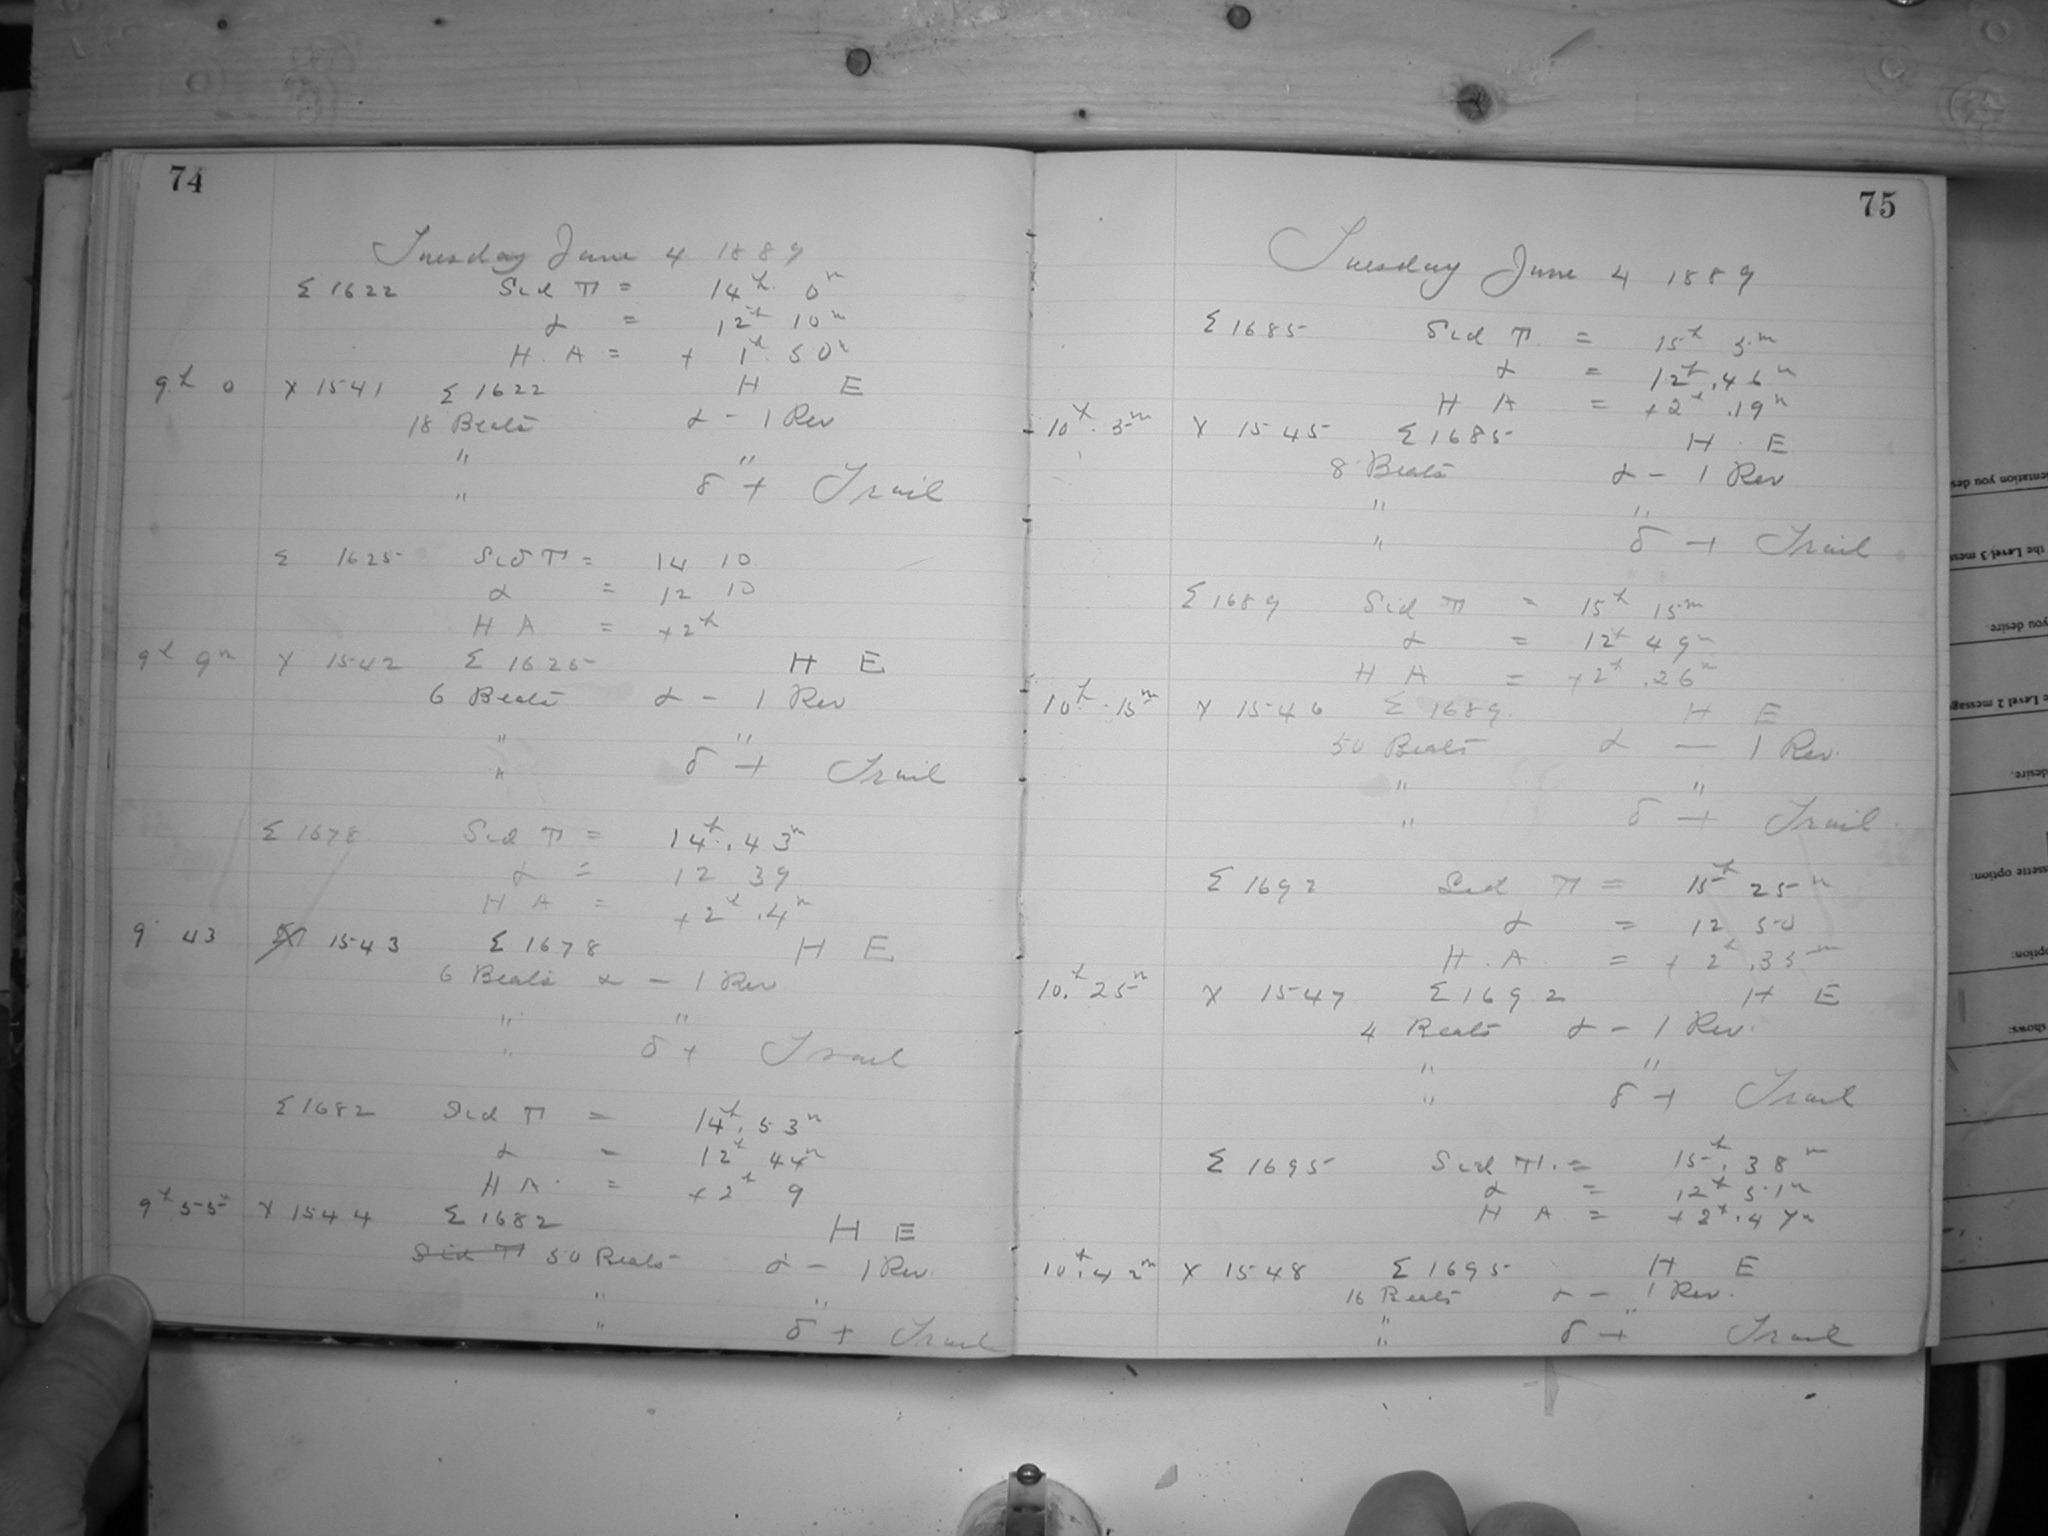 74
Tuesday June 4 1889
Σ 1622 Sid T = 14h 0m
α = 12h 10m
H. A = + 1h 50m
9h 0 X 1541 Σ 1622 H E
18 Beats α - 1 Rev
" "
" δ + Trail
Σ 1625 Sid T = 14 10
α = 12 10
H A = +2h
9h 9m X 1542 Σ 1625 H E
6 Beats α - 1 Rev
" "
" δ + Trail
Σ 1678 Sid T = 14h.43m
α = 12 39
H A = +2h.4m
9 43 X 1543 Σ 1678 H E
6 Beats α - 1 Rev
" "
" δ + Trail
Σ 1682 Sid T = 14h.53m
α = 12h 44m
H A. = +2h 9
9h 55m X 1544 Σ 1682 H E
Sid T 50 Beats α - 1 Rev.
" "
" δ + Trail
75
Tuesday June 4 1889
Σ 1685 Sid T. = 15h 5m
α = 12h.46m
H A = +2h.19m
10h.5m X 1545 Σ 1685 H. E
8 Beats α - 1 Rev
" "
" δ + Trail
Σ 1689 Sid T = 15h 15m
α = 12h 49m
H A = +2h.26m
10h.15m X 1546 Σ 1689. H E
50 Beats α - 1 Rev.
" "
" δ + Trail
Σ 1692 Sid T = 15h 25m
α = 12 50
H. A. = + 2h.35m
10.h 25m X 1547 Σ 1692 H E
4 Beats α - 1 Rev.
" "
" δ + Trail
Σ 1695 Sid T. = 15h.38m
α = 12h 51m
H A = +2h.47m
10h.42m X 1548 Σ 1695 H E
16 Beats α - 1 Rev.
" "
" δ + Trail
entation you des
the Level 3 mess
you desire.
e Level 2 message
desire.
ssette option:
option:
shows: